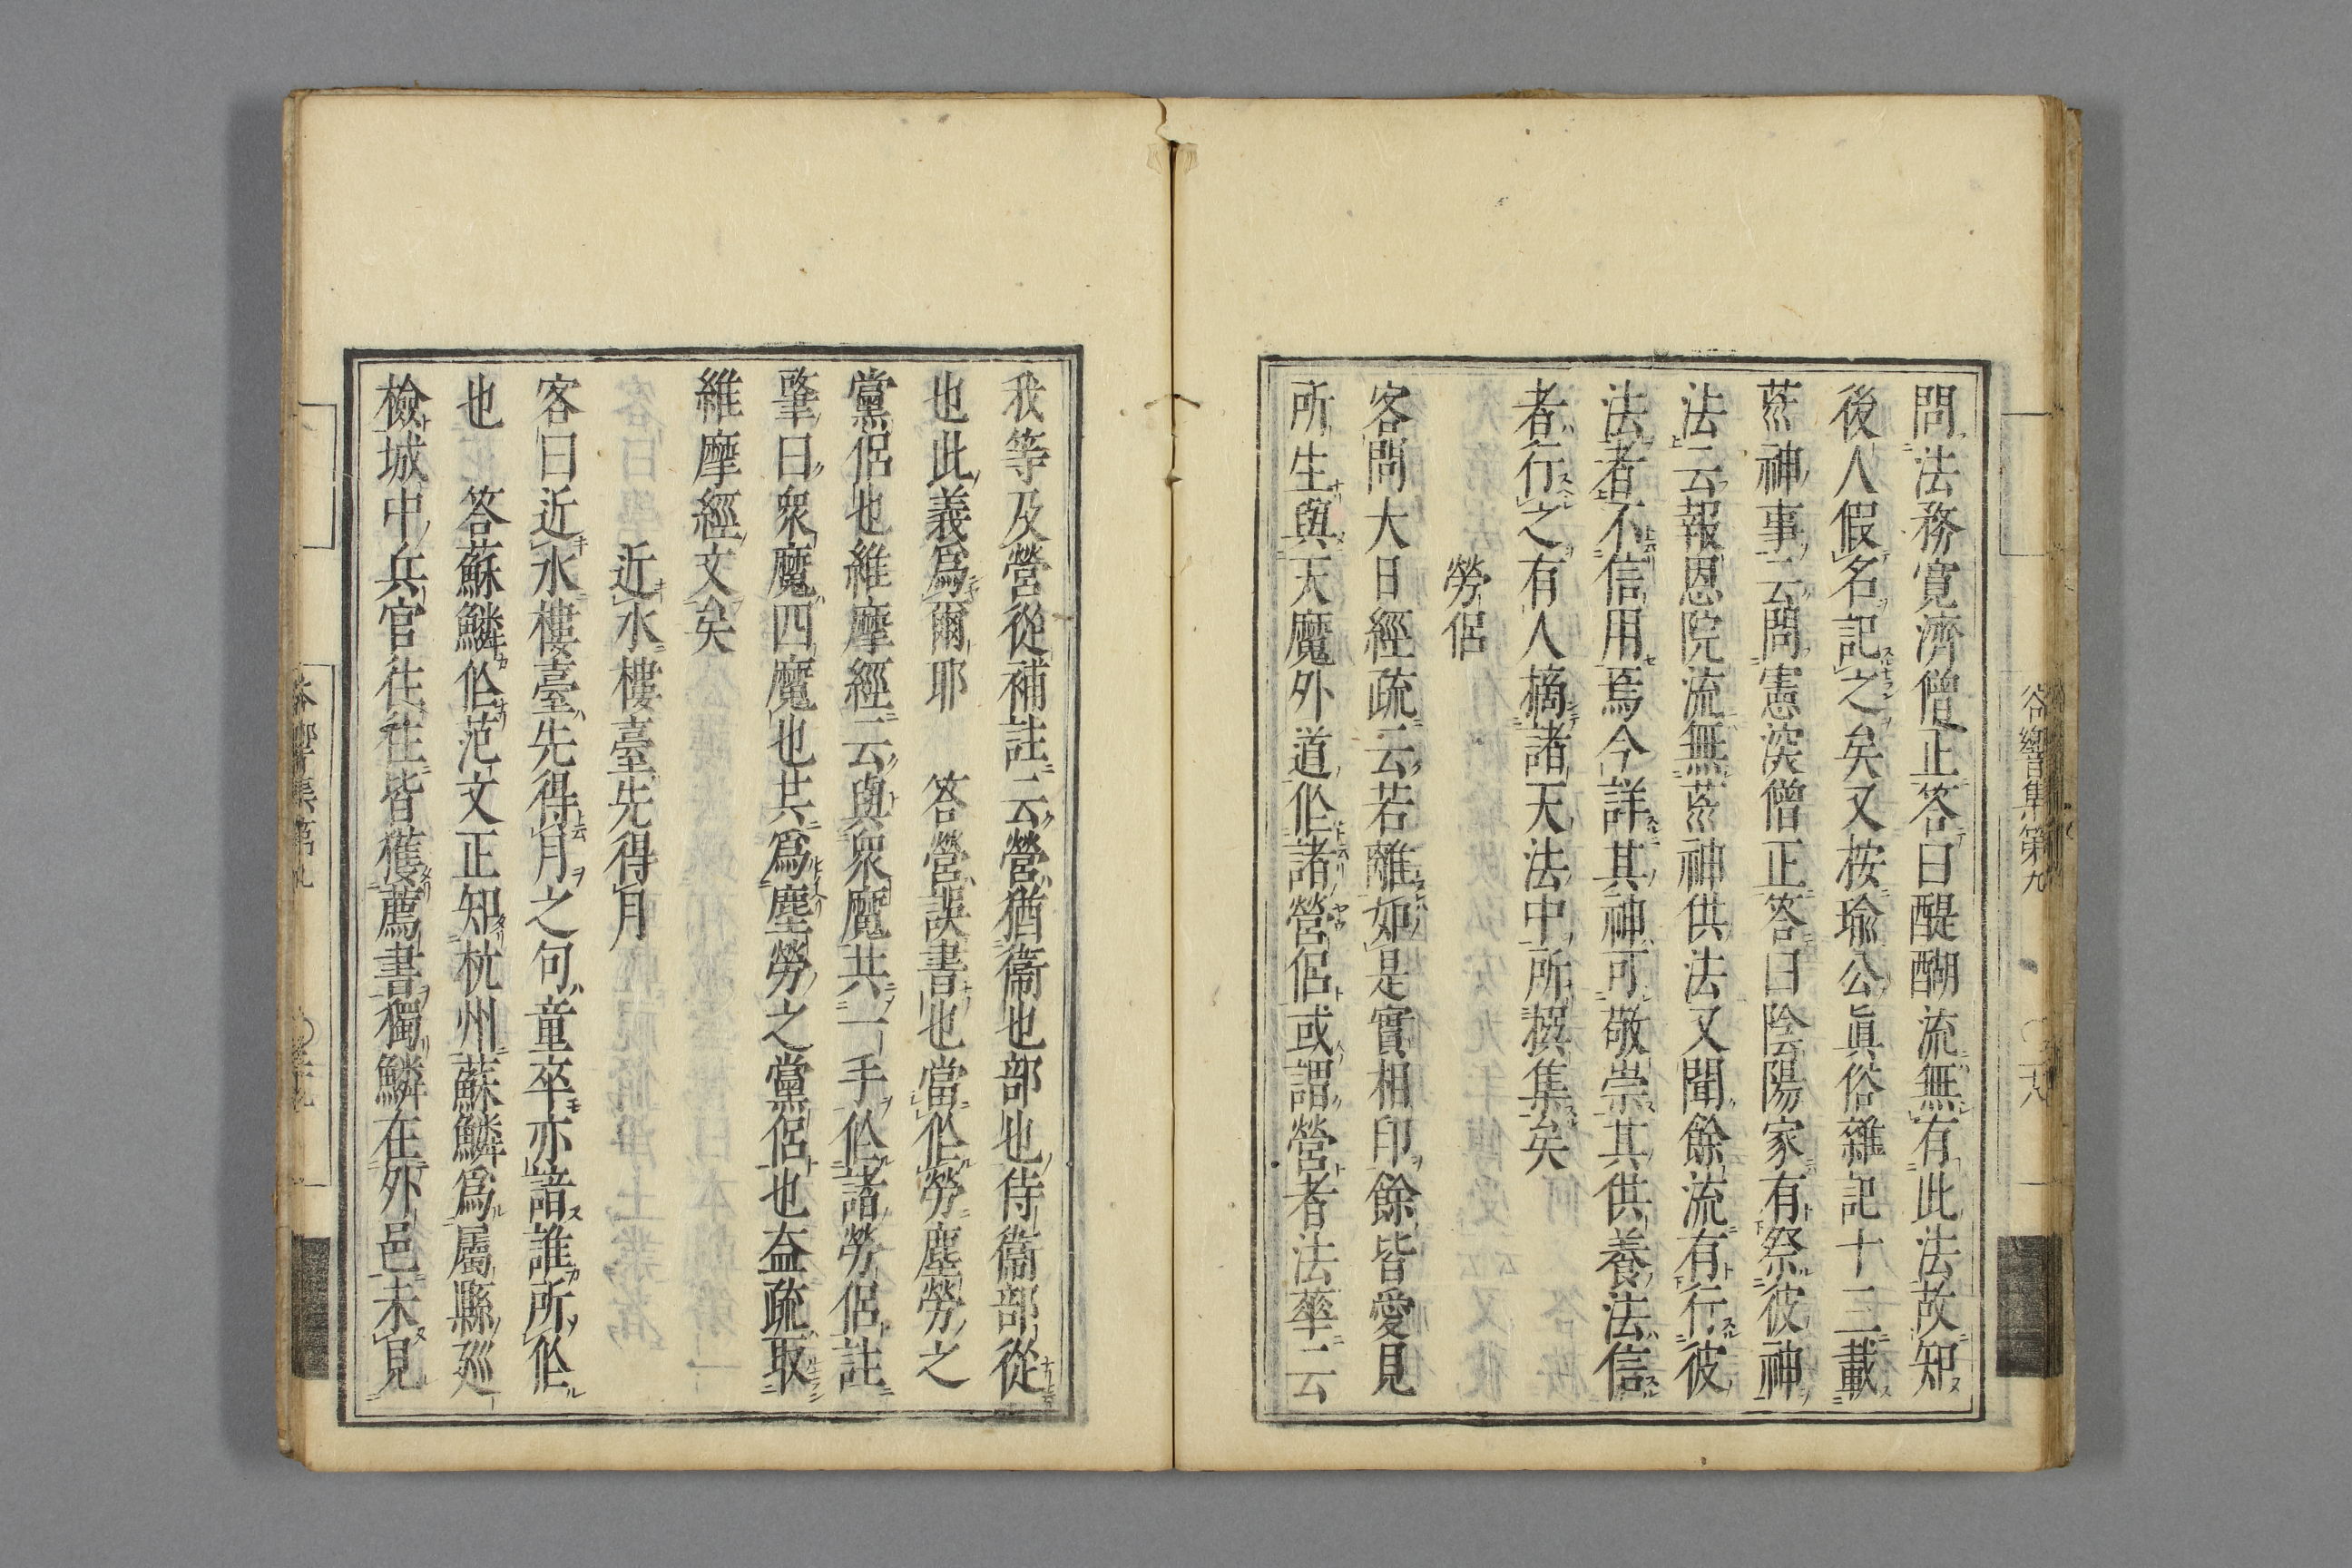 問法務寛濟僧正答曰醍醐流無有此法故知
後人假名記之矣又按瑜公眞俗雜記十三載
神事云問憲深僧正答曰陰陽家有祭彼神
法云報恩院流無神供法又聞餘流有行彼
法者不信用焉今詳其神可敬崇其供養法信
者行之有人摘諸天法中所撰集矣
勞侶
客問大日經疏云若離如是實相印餘皆愛見
所生與天魔外道作諸營侶或謂營者法華云
我等及營從補註云營猶衞也部也侍衞部從
也此義爲爾耶　答營誤書也當作勞塵勞之
黨侶也維摩經云與衆魔共一手作諸勞侶註
肇曰衆魔四魔也共爲塵勞之黨侶也益疏取
維摩經文矣
近水樓臺先得月
客曰近水樓臺先得月之句童卒亦諳誰所作
也　答蘇鱗作范文正知杭州蘇鱗爲屬縣巡
檢城中兵官往往皆獲薦書獨鱗在外邑未見
谷響集第九